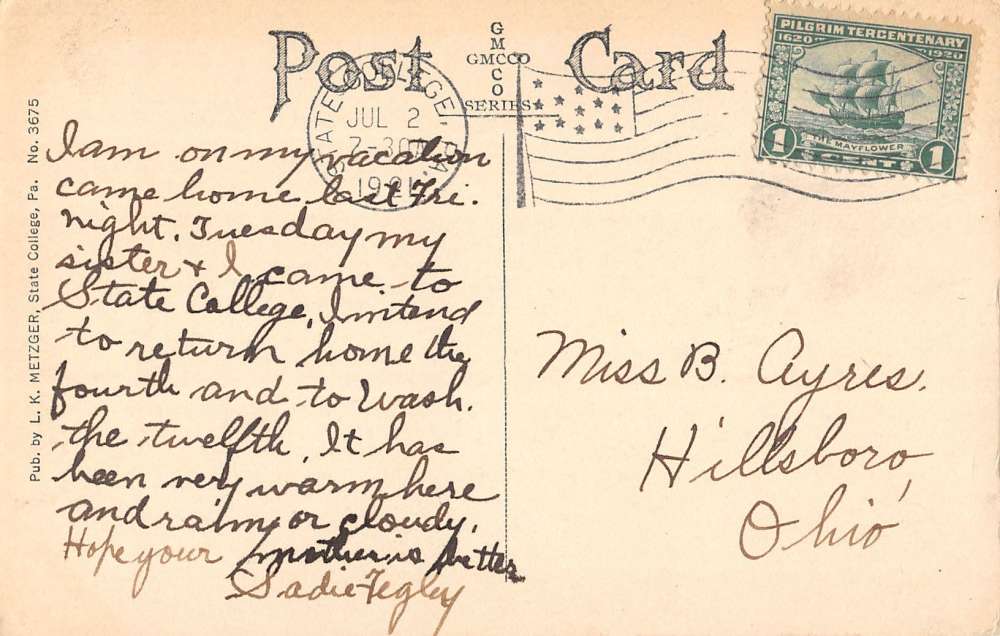 Post Card
G
M
GMCCO
C
O
SERIES
PILGRIM TERCENTENARY
1620 1920
THE MAYFLOWER
1 CENT 1
STATE COLLEGE, PA.
JUL 2
7-30
Pub. by L. K. METZGER, State College, Pa. No. 3675
I am on my vacation
came home last Fri.
night. Tuesday my
sister & I came to
State College. I intend
to return home the
fourth and to Wash.
the twelfth. It has
been very warm here
and rainy or cloudy.
Hope your mother is better
Sadie Fegley
Miss B. Ayres.
Hillsboro,
Ohio